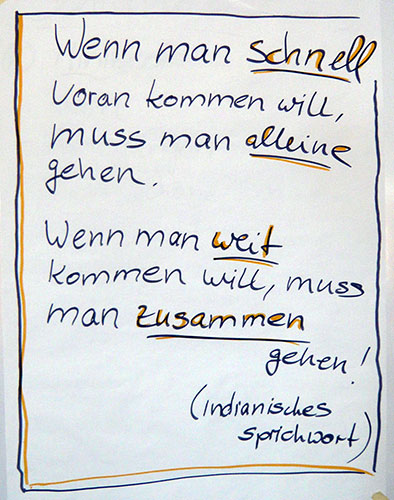 Wenn man schnell
voran kommen will,
muss man alleine
gehen.
Wenn man weit
kommen will, muss
man zusammen
gehen!
(indianisches
Sprichwort)